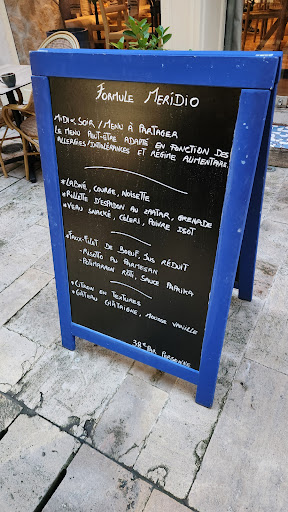 Formule Meridio
Midi & Soir / Menu à Partager
Le menu peut-être adapté en fonction des
allergies/intolérances et régime alimentaire.
* Labné, courge, noisette
* Rillette d'espadon au zaatar, grenade
* Veau snacké, céleri, poivre Isot
* Faux-filet de boeuf, jus réduit
- Risotto au parmesan
- Potimarron rôti, sauce paprika
* Citron en textures
* Gâteau châtaigne, mousse vanille
38€ par personne